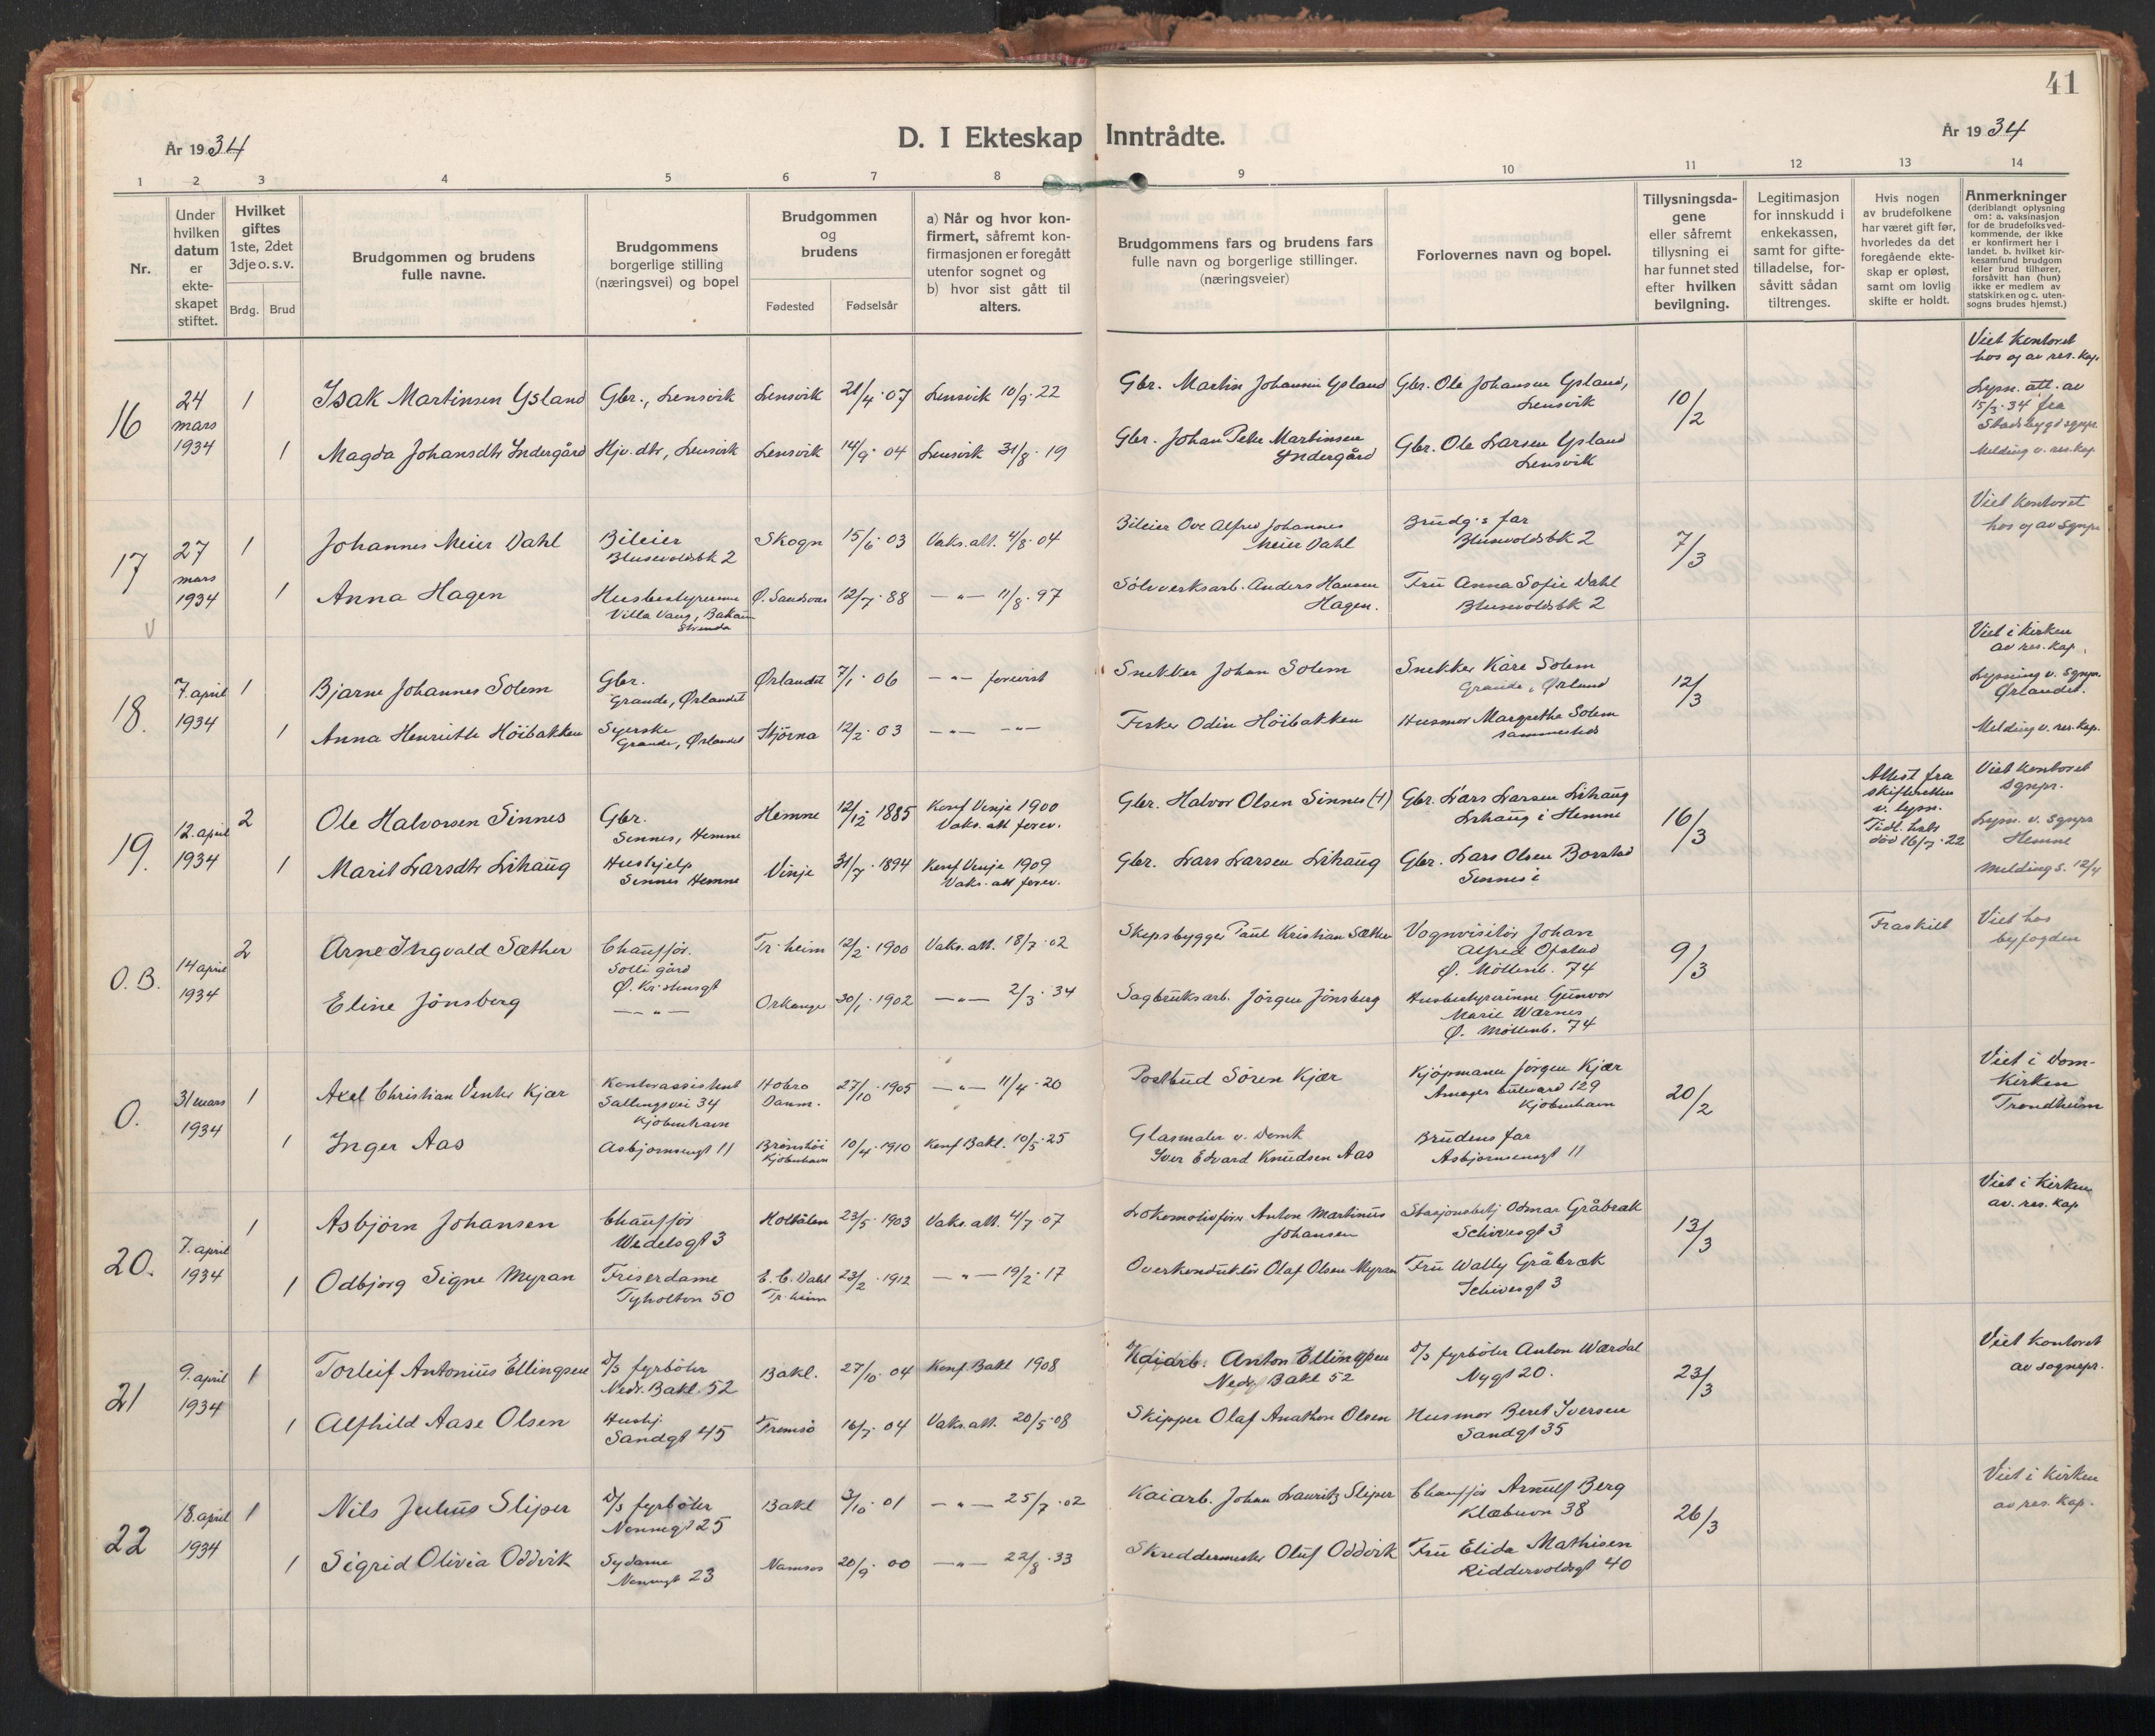 41
År 1934
D. I Ekteskap Inntrådte.
År 1934
1 2 3 4 5 6 7 8 9 10 11 12 13 14
Nr.
Under hvilken datum er ekte- skapet stiftet.
Hvilket giftes 1ste, 2det 3dje o. s. v.
Brdg. Brud
Brudgommen og brudens fulle navne.
Brudgommens borgerlige stilling (næringsvei) og bopel
Brudgommen og brudens
Fødested Fødselsår
a) Når og hvor kon- firmert, såfremt kon- firmasjonen er foregått utenfor sognet og b) hvor sist gått til alters.
Brudgommens fars og brudens fars fulle navn og borgerlige stillinger. (næringsveier)
Forlovernes navn og bopel.
Tillysningsda- gene eller såfremt tillysning ei har funnet sted efter hvilken bevilgning.
Legitimasjon for innskudd i enkekassen, samt for gifte- tilladelse, for- såvitt sådan tiltrenges.
Hvis nogen av brudefolkene har været gift før, hvorledes da det foregående ekte- skap er opløst, samt om lovlig skifte er holdt.
Anmerkninger (deriblandt oplysning om: a. vaksinasjon for de brudefolksved- kommende, der ikke er konfirmert her i landet. b. hvilket kir- kesamfund brudgom eller brud tilhører, forsåvitt han (hun) ikke er medlem av statskirken og c. uten- sogns brudes hjemst.)
16
24 mars 1934
1 Isak Martinsen Ysland Gbr., Lensvik Lensvik 21/4·07 Lensvik 10/9·22
Gbr. Martin Johansen Ysland
Gbr. Ole Johansen Ysland, Lensvik
10/2
Viet kontoret hos og av res. kap.
Lysn. att. av 15/3·34 fra Stadsbygd sgnpr.
Melding v. res. kap.
1 Magda Johansdtr Yndergård Hjv. dtr, Lensvik Lensvik 14/9·04 Lensvik 31/8·19
Gbr. Johan Peter Martinsen Yndergård
Gbr. Ole Larsen Ysland Lensvik
17
27 mars 1934
1 Johannes Meier Dahl Bileier Blusevoldsbk 2 Skogn 15/6·03 Vaks. att. 4/8·04
Bileier Ove Alfred Johannes Meier Dahl
Brudg.s far Blusevoldsbk 2
7/3
Viet kontoret hos og av sgnpr
1 Anna Hagen Husbestyrerinne Villa Vang, Bakaun Strinda Ø. Sandsvær 12/7·88 — " — 11/8·97
Sølvverksarb. Anders Hansen Hagen.
Fru Anna Sofie Dahl Blusevoldsbk 2
18.
7. april 1934
1 Bjarne Johannes Solem Gbr. Grande, Ørlandet Ørlandet 7/1·06 — " — forevist
Snekker Johan Solem
Snekker Kåre Solem Grande, Ørland
12/3
Viet i kirken av res. kap.
Lysning v. sgnpr. Ørlandet.
Melding v. res. kap.
1 Anna Henriette Höibakken Syerske Grande, Ørlandet Stjörna 12/2·03 — " — — " —
Fisker Odin Höibakken
Husmor Margrethe Solem sammesteds
19.
12. april 1934
2 Ole Halvorsen Sinnes Gbr. Sinnes, Hemne Hemne 12/12·1885 Konf Vinje 1900 Vaks. att forev.
Gbr. Halvor Olsen Sinnes (†)
Gbr. Lars Larsen Lihaug Lihaug i Hemne
16/3
Attest fra skifteretten v. lysn. Tidl. hustr død 16/7·22
Viet kontoret sgnpr.
Lysn. v. sgnpr Hemne
Melding s. 12/4
1 Marit Larsdtr Lihaug Hushjelp Sinnes Hemne Vinje 31/7·1894 Konf Vinje 1909 Vaks. att forev.
Gbr. Lars Larsen Lihaug
Gbr. Lars Olsen Borstad Sinnes i
O.B.
14 april 1934
2 Arne Ingvald Sæther Chauffør. Solli gård Ø. Kristensgt Tr.heim 12/2·1900 Vaks. att. 18/7·02
Skipsbygger Paul Kristian Sæther
Vognvisitör Johan Alfred Ofstad Ø. Möllenb. 74
9/3
Fraskilt
Viet hos byfogden
Eline Jönsberg — " — Orkanger 30/1·1902 — " — 2/3·34
Sagbruksarb. Jörgen Jönsberg
Husbestyrerinne Gunvor Marie Warnes Ø. Möllenb. 74
O.
31 mars 1934
1 Axel Christian Venter Kjær Kontorassistent Sallingsvei 34 Kjöbenhavn Hobro Danm. 27/10·1905 — " — 11/4·20
Postbud Sören Kjær
Kjöpmann Jörgen Kjær Amager bulevard 129 Kjöbenhavn
20/2
Viet i Dom- kirken Trondheim
1 Inger Aas Asbjörnsensgt 11 Brönshöi Kjöbenhavn 10/4·1910 Konf Bakl. 10/5·25
Glasmaler v. Domk Iver Edvard Knudsen Aas
Brudens far Asbjörnsensgt 11
20.
7. april 1934
1 Asbjörn Johansen Chauffør Wedelsgt 3 Holtålen 23/5·1903 Vaks. att. 4/7·07
Lokomotivförer Anton Martinus Johansen
Stasjonsbetj Odmar Gråbræk Schivesgt 3
13/3
Viet i kirken av. res. kap
1 Odbjørg Signe Myran Friserdame Tyholtvn 50 E. C. Dahl Tr.heim 23/2·1912 — " — 19/2·17
Overkonduktör Olaf Olsen Myran
Fru Wally Gråbræk Schivesgt 3
21
9. april 1934
1 Torleif Antonius Ellingsen D/S fyrböter Nedr. Bakl. 52 Bakl. 27/10·04 Konf. Bakl 1908
Kaiarb. Anton Ellingsen Nedr Bakl 52
D/S fyrböter Anton Wærdal Nygt 20.
23/3
Viet kontoret av sognepr.
1 Alfhild Aase Olsen Hushj. Sandgt 45 Tromsö 16/7·04 Vaks. att. 20/5·08
Skipper Olaf Anathon Olsen
Husmor Beret Iversen Sandgt 35
22
18. april 1934
1 Nils Julius Sliper D/S fyrböter Nonnegt 25 Bakl 3/10·01 — " — 25/7·02
Kaiarb. Johan Lauritz Sliper
Chauffør Arnulf Berg Klæbuvn 38
26/3
Viet i kirken av res. kap.
1 Sigrid Olivia Oddvik Sydame Nonnegt 23 Namsos 20/9·00 — " — 22/8·33
Skreddermester Oluf Oddvik
Fru Elida Mathisen Riddervoldsgt 40